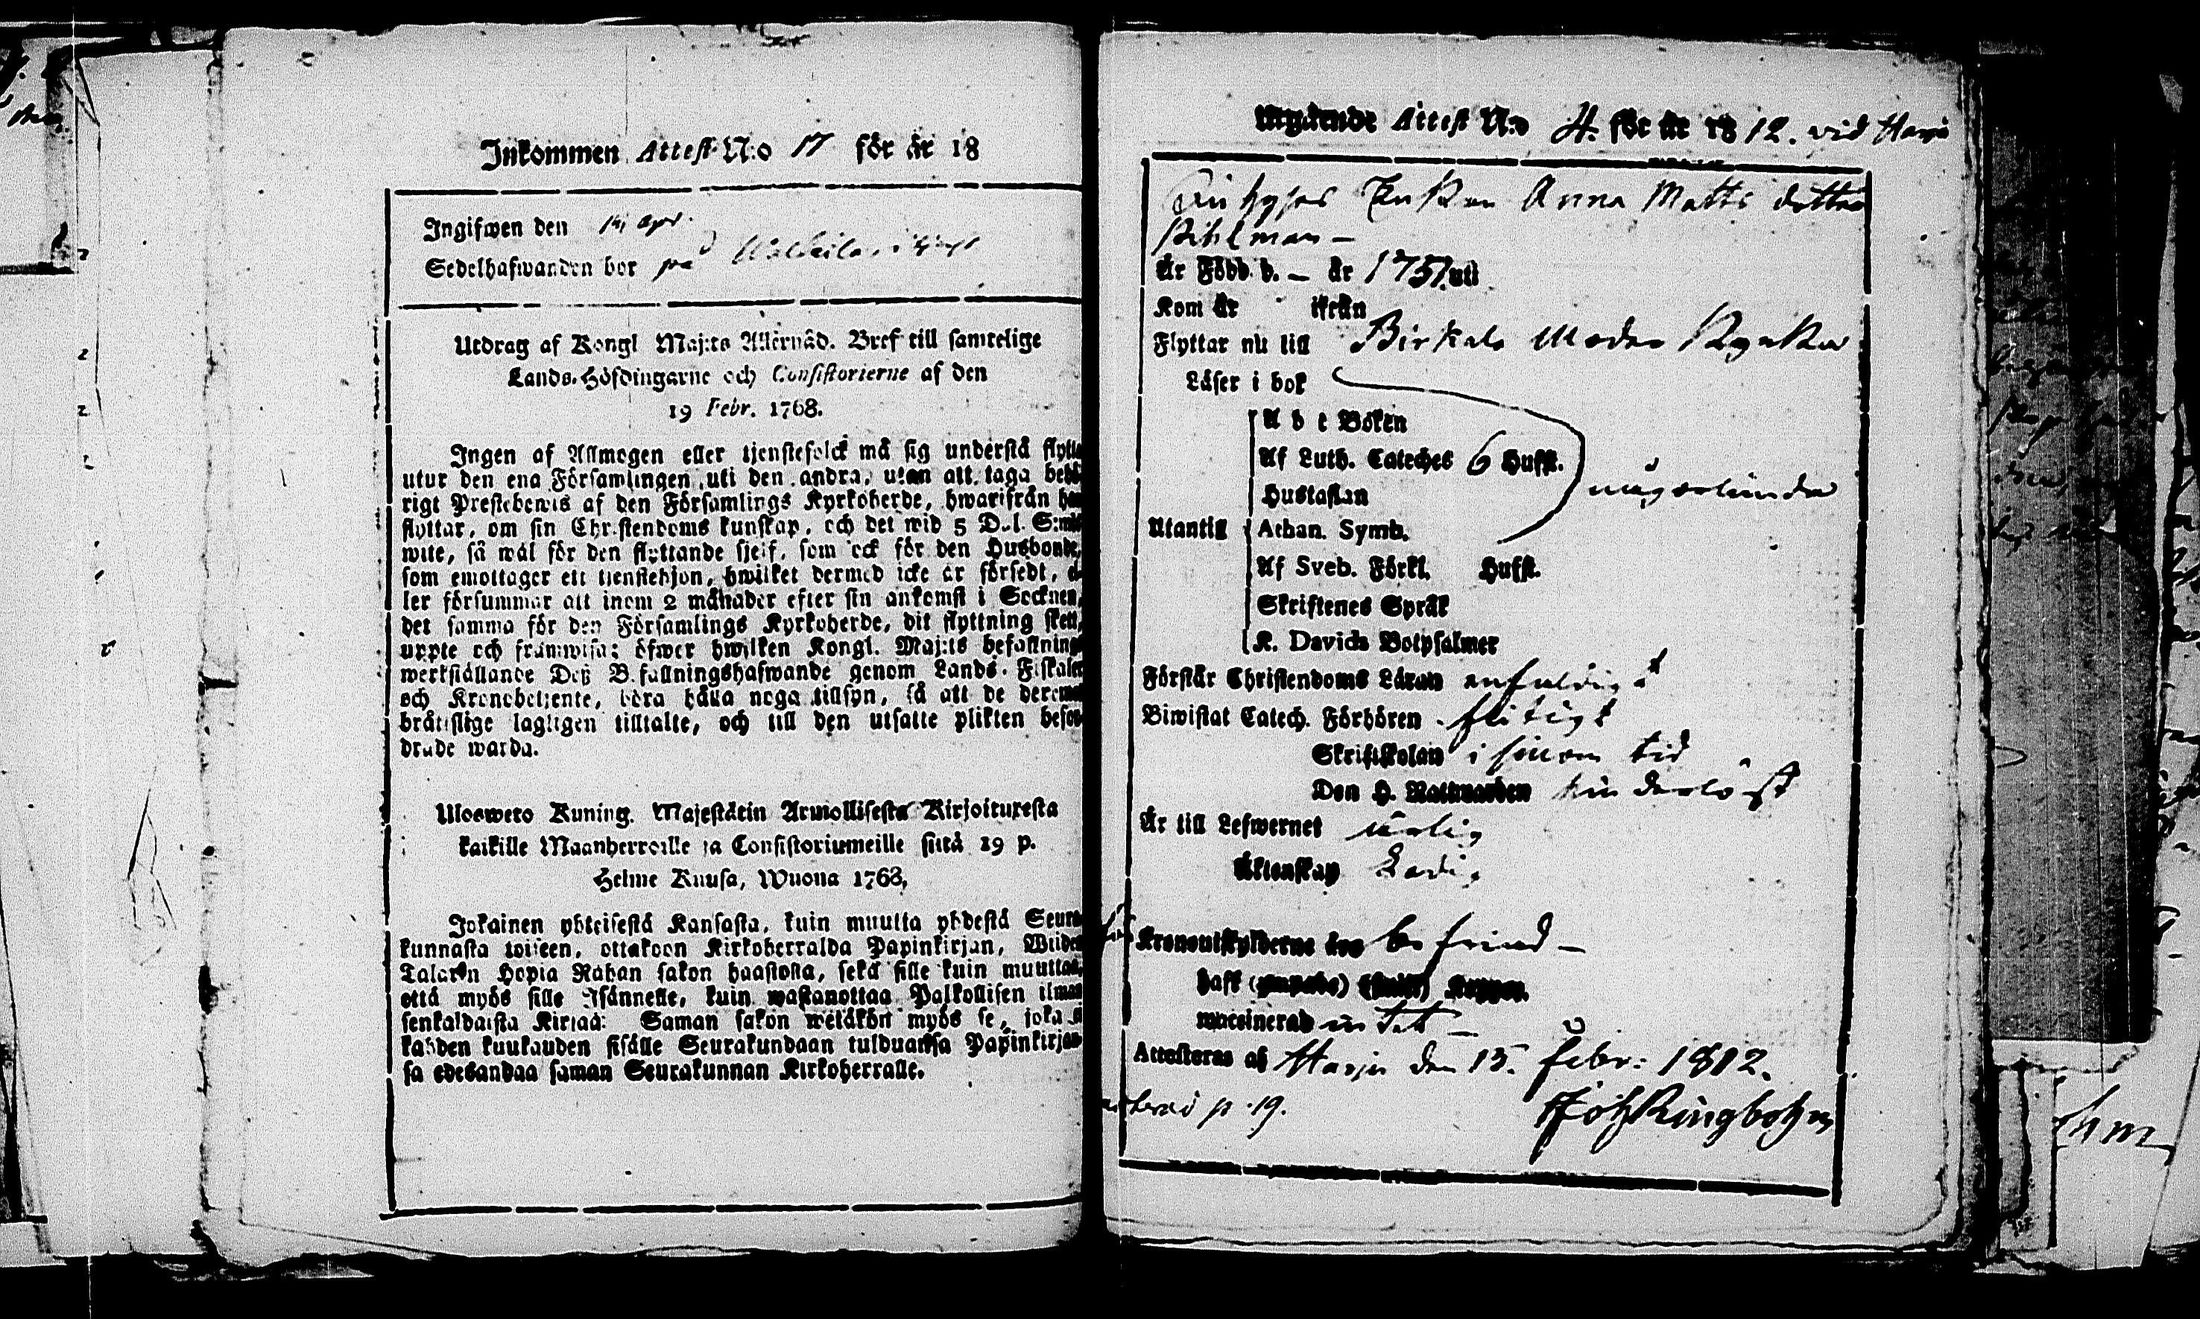 Inkommen Attest N:o 17 för år 18
Ingifwen den 14 Apr.
Sedelhafwanden bor på
Utdrag af Kongl Maj:ts Allernåd. Bref till samtelige
Lands-Höfdingarne och Consistorierne af den
19 Febr. 1768.
Ingen af Allmogen eller tjenstefolck må sig understå flytta
utur den ena Församlingen uti den andra, utan att taga behö-
rigt Prestebewis af den Församlings Kyrkoherde, hwarifrån han
flyttar, om sin Christendoms kunskap, och det wid 5 Dal. S:mts
wite, så wäl för den flyttande sjelf, som ock för den Husbonde,
som emottager ett tjenstehjon, hwilket dermed icke är försedt, el-
ler försummar att inom 2 månader efter sin ankomst i Socknen,
det samma för den Församlings Kyrkoherde, dit flyttning skett,
uppte och framwisa; öfwer hwilken Kongl. Maj:ts befallning
werkställande Deß Befallningshafwande genom Lands-Fiskaler
och Kronobetjente, böra hålla noga tillsyn, så att de deremot
bråttslige lagligen tilltalte, och till den utsatte plikten befor-
drade warda.
Uloswето Kuning. Majestätin Armollisesta Kirjoituxesta
kaikille Maanherroille ja Consistoriumeille siitä 19 p.
Helme Kuusa, Wuona 1768,
Jokainen yhteisestä Kansasta, kuin muutta yhdestä Seura-
kunnasta toiseen, ottakoon Kirkoherralda Papinkirjan, Wiiden
Talarin Hopia Rahan sakon haastolla, sekä sille kuin muuttaa,
että myös sille Isännelle, kuin wastanottaa Palkollisen ilman
senkaldaista Kirjaa: Saman sakon wetäkön myös se, joka ei
kahden kuukauden sisälle Seurakundaan tulduansa Papinkirjan-
sa edesandaa saman Seurakunnan Kirkoherralle.
Utgående Attest N:o 4. för år 1812. vid Harju
Enkan Anna Matts dotter
Pihlman –
Är Född d. – år 1751. uti
Kom år ifrån
Flyttar nu till Birkala Moder Kyrka
Läser i bok
A b c Boken
Af Luth. Cateches 6 Hufst.
Hustaflan
Utantill Athan. Symb.
Af Sveb. Förkl. Hufst.
Skriftenes Språk
K. Davids Botpsalmer
Förstår Christendoms Läran enfaldigt
Biwistat Catech. Förhören flitigt
Skriftskolan i sinom tid
Den H. Nattwarden hinderlöst
Är till Lefwernet ärlig
Äktenskap Ledig
Kronoutskylderne äro befriad –
haft
waccinerad intet –
Attesteras af Harju den 15. Febr: 1812.
p. 19.
Joh Ringbohm